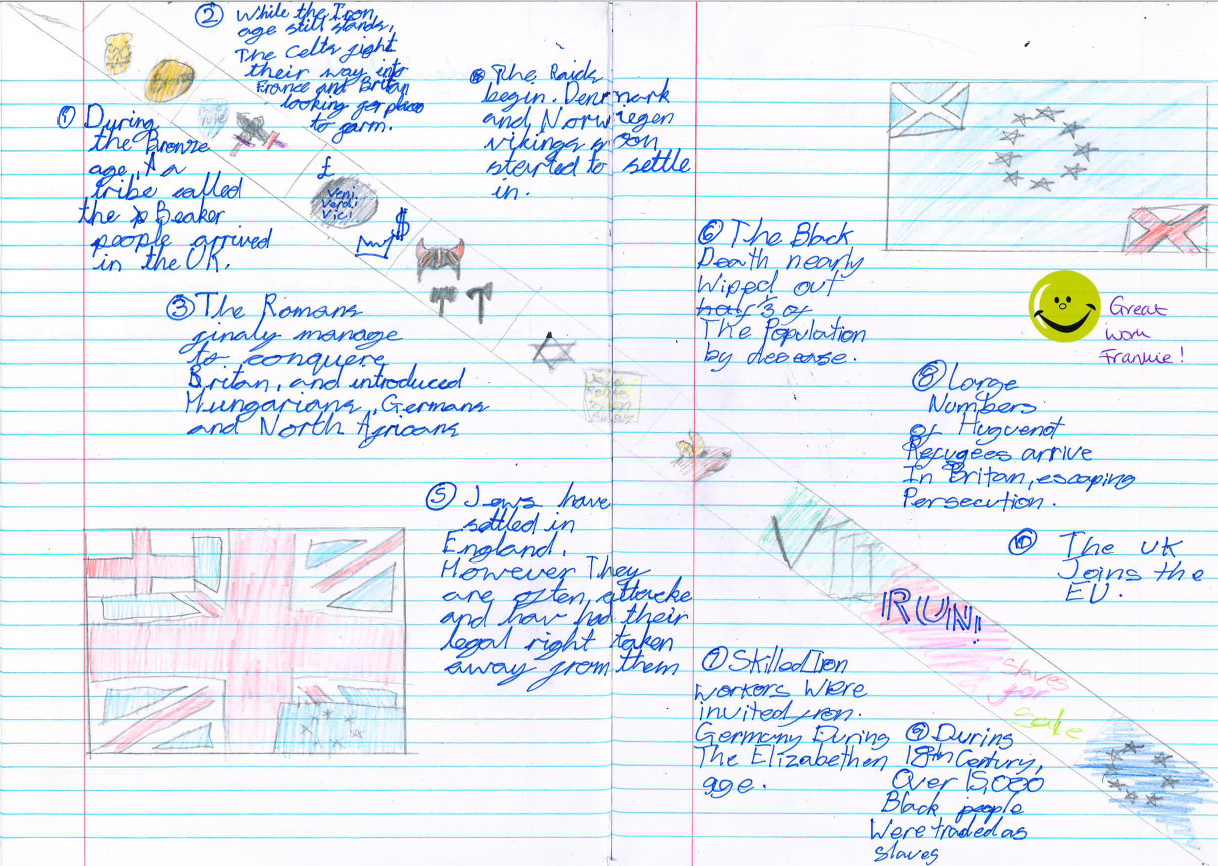 ② While the Iron
age still stands,
The Celts fight
their way into
France and Britan
looking for place
to farm.
① During
the Bronze
age, A a
tribe called
the Beaker
people arrived
in the UK.
④ The Raids
begin. Denmark
and Norwiegen
vikings soon
started to settle
in.
£
Veni,
Verdi,
Vici
$
③ The Romans
finaly manage
to conquere
Britan, and introduced
Hungarians, Germans
and North Africans
⑥ The Black
Death nearly
Wipped out
half ⅓ of
The Population
by decease.
Great
work
Frankie!
⑧ Large
Numbers
of Huguenot
Refugees arrive
In Britan, escaping
Persecution.
⑤ Jews have
settled in
England.
However They
are often attacke
and hav had their
legal right taken
away from them
⑩ The UK
Joins the
EU.
VIII
RUN!
Slaves
for
Sale
⑦ Skilled Iron
workers Were
invited from
Germany During
The Elizabethen
age.
⑨ During
18th Century,
Over 15,000
Black people
Were traded as
slaves